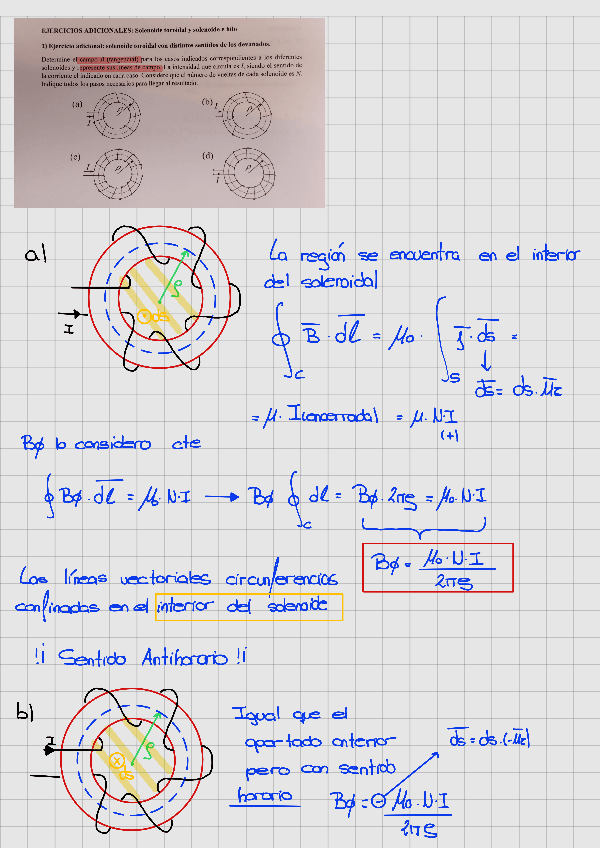 EJERCICIOS ADICIONALES: Solenoide toroidal y solenoide e hilo
1) Ejercicio adicional: solenoide toroidal con distintos sentidos de los devanados.
Determine el campo B (tangencial) para los casos indicados correspondientes a los diferentes
solenoides y represente sus líneas de campo. La intensidad que circula es I, siendo el sentido de
la corriente el indicado en cada caso. Considere que el número de vueltas de cada solenoide es N.
Indique todos los pasos necesarios para llegar al resultado.
(a) (b)
(c) (d)
a)
I
ρ
ds
La región se encuentra en el interior
del solenoidal
∮c B̄ · dl̄ = μ₀ · ∫s J̄ · ds̄ =
ds̄ = ds · ūz
= μ · I(encerrada) = μ · N · I
(+)
Bφ lo considero cte
∮ Bφ · dl̄ = μ₀ · N · I → Bφ ∮c dl = Bφ · 2πρ = μ₀ · N · I
Bφ = μ₀ · N · I / 2πρ
Las líneas vectoriales circunferencias
confinadas en el interior del solenoide
!¡ Sentido Antihorario !¡
b)
I
ρ
ds
Igual que el
apartado anterior
pero con sentido
horario
ds̄ = ds · (-ūz)
Bφ = - μ₀ · N · I / 2πρ